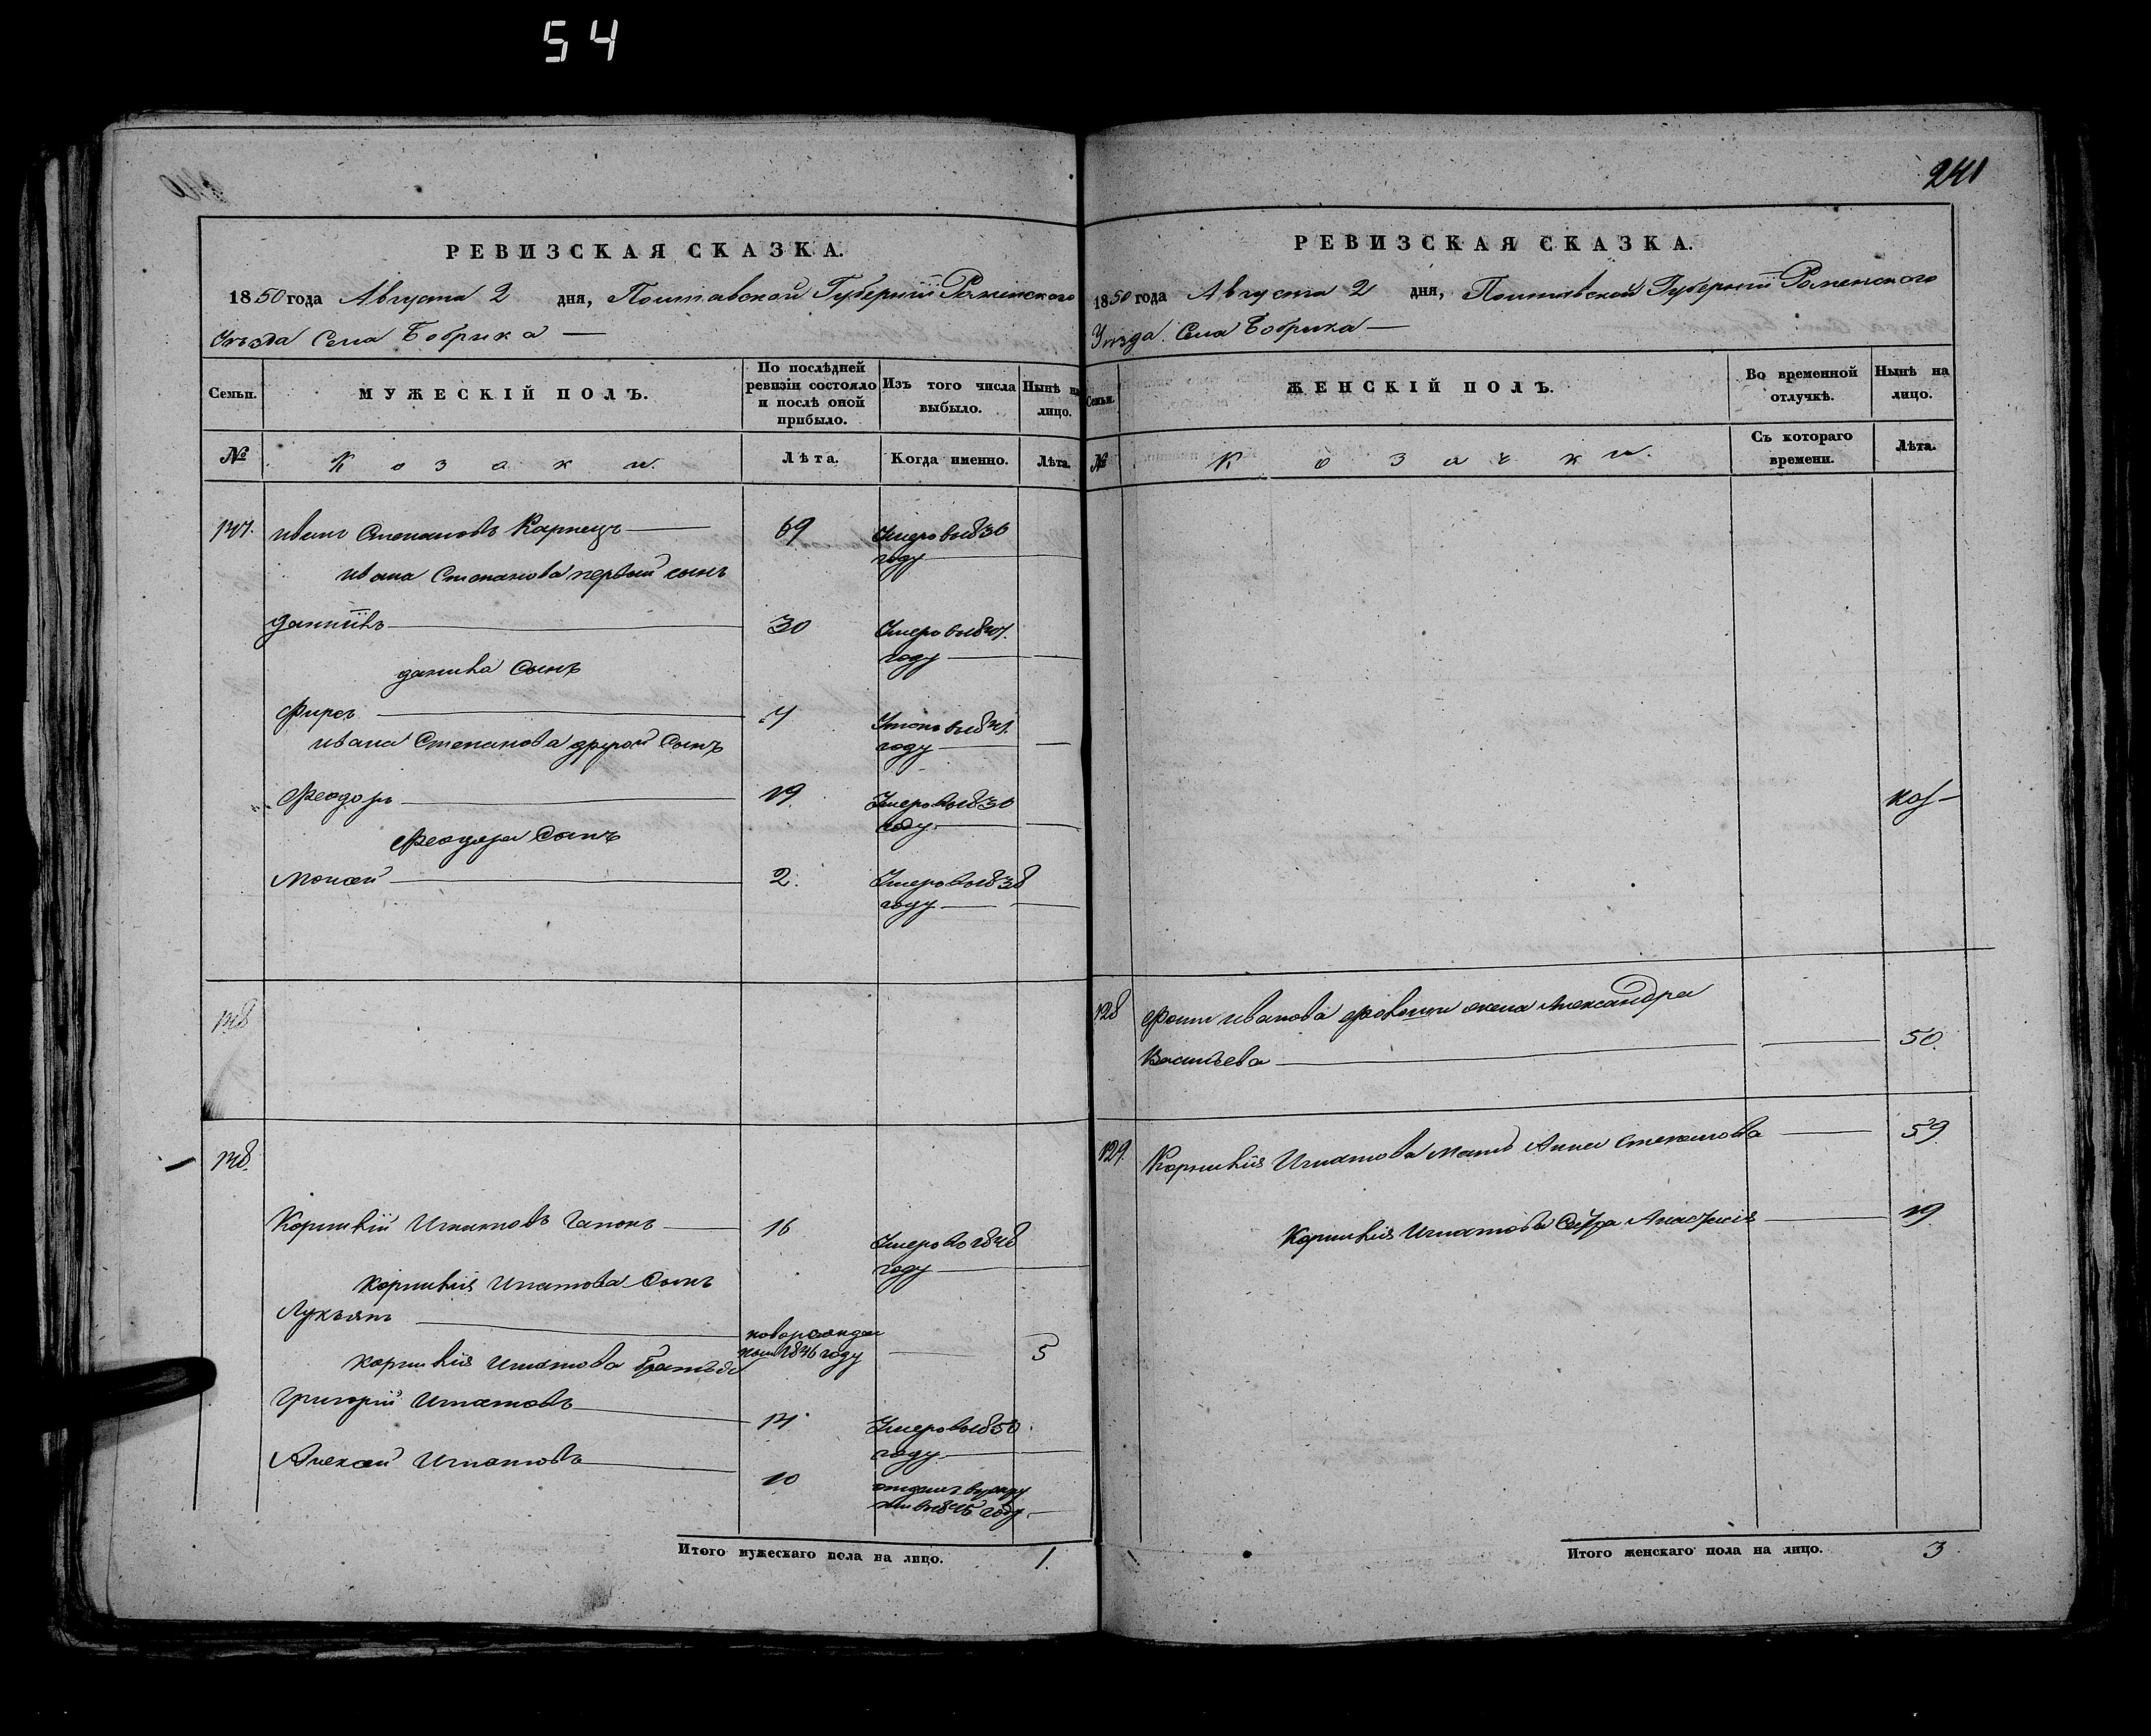 54
241
РЕВИЗСКАЯ СКАЗКА.
1850 года Августа 2 дня, Полтавской Губерніи Роменского
Уѣзда Села Бобрика —
Семьи. МУЖЕСКІЙ ПОЛЪ. По послѣдней ревизіи состояло и послѣ оной прибыло. Изъ того числа выбыло. Нынѣ на лицо.
№ Козаки. Лѣта. Когда именно. Лѣта.
Иванъ Степановъ Карпецъ — 69 Умеръ въ 1836
году —
Ивана Степанова первый сынъ
Даниилъ — 30
году —
данила Сынъ
Фирсъ — 7
Ивана Степанова другой Сынъ году —
Феодоръ — 19. Умеръ въ 1836
году. —
Феодора Сынъ
Мокей — 2. Умеръ въ 1838
году —
128
128.
Корнилій Игнатовъ Гапонъ — 16 Умеръ въ 1848
году —
Корнилія Игнатова Сынъ
Лукьянъ — новорожден
ный 1846 году — 5
Корнилія Игнатова братья
Григорій Игнатовъ — 14 Умеръ въ 1850
году —
Алексей Игнатовъ — 10 отданъ в рекру
ты въ 1845 году. —
Итого мужескаго пола на лицо. 1.
РЕВИЗСКАЯ СКАЗКА.
1850 года Августа 2 дня, Полтавской Губерніи Роменского
Уѣзда Села Бобрика —
Семьи. ЖЕНСКІЙ ПОЛЪ. Во временной отлучкѣ. Нынѣ на лицо.
№ Козачки. Съ котораго времени. Лѣта.
128 Иванова жена Александра
Васильева — 50.
129. Корнилія Игнатова Мать Анна Степанова — 59
Корнилія Игнатова Сестра Анастасія — 19.
Итого женскаго пола на лицо. 3